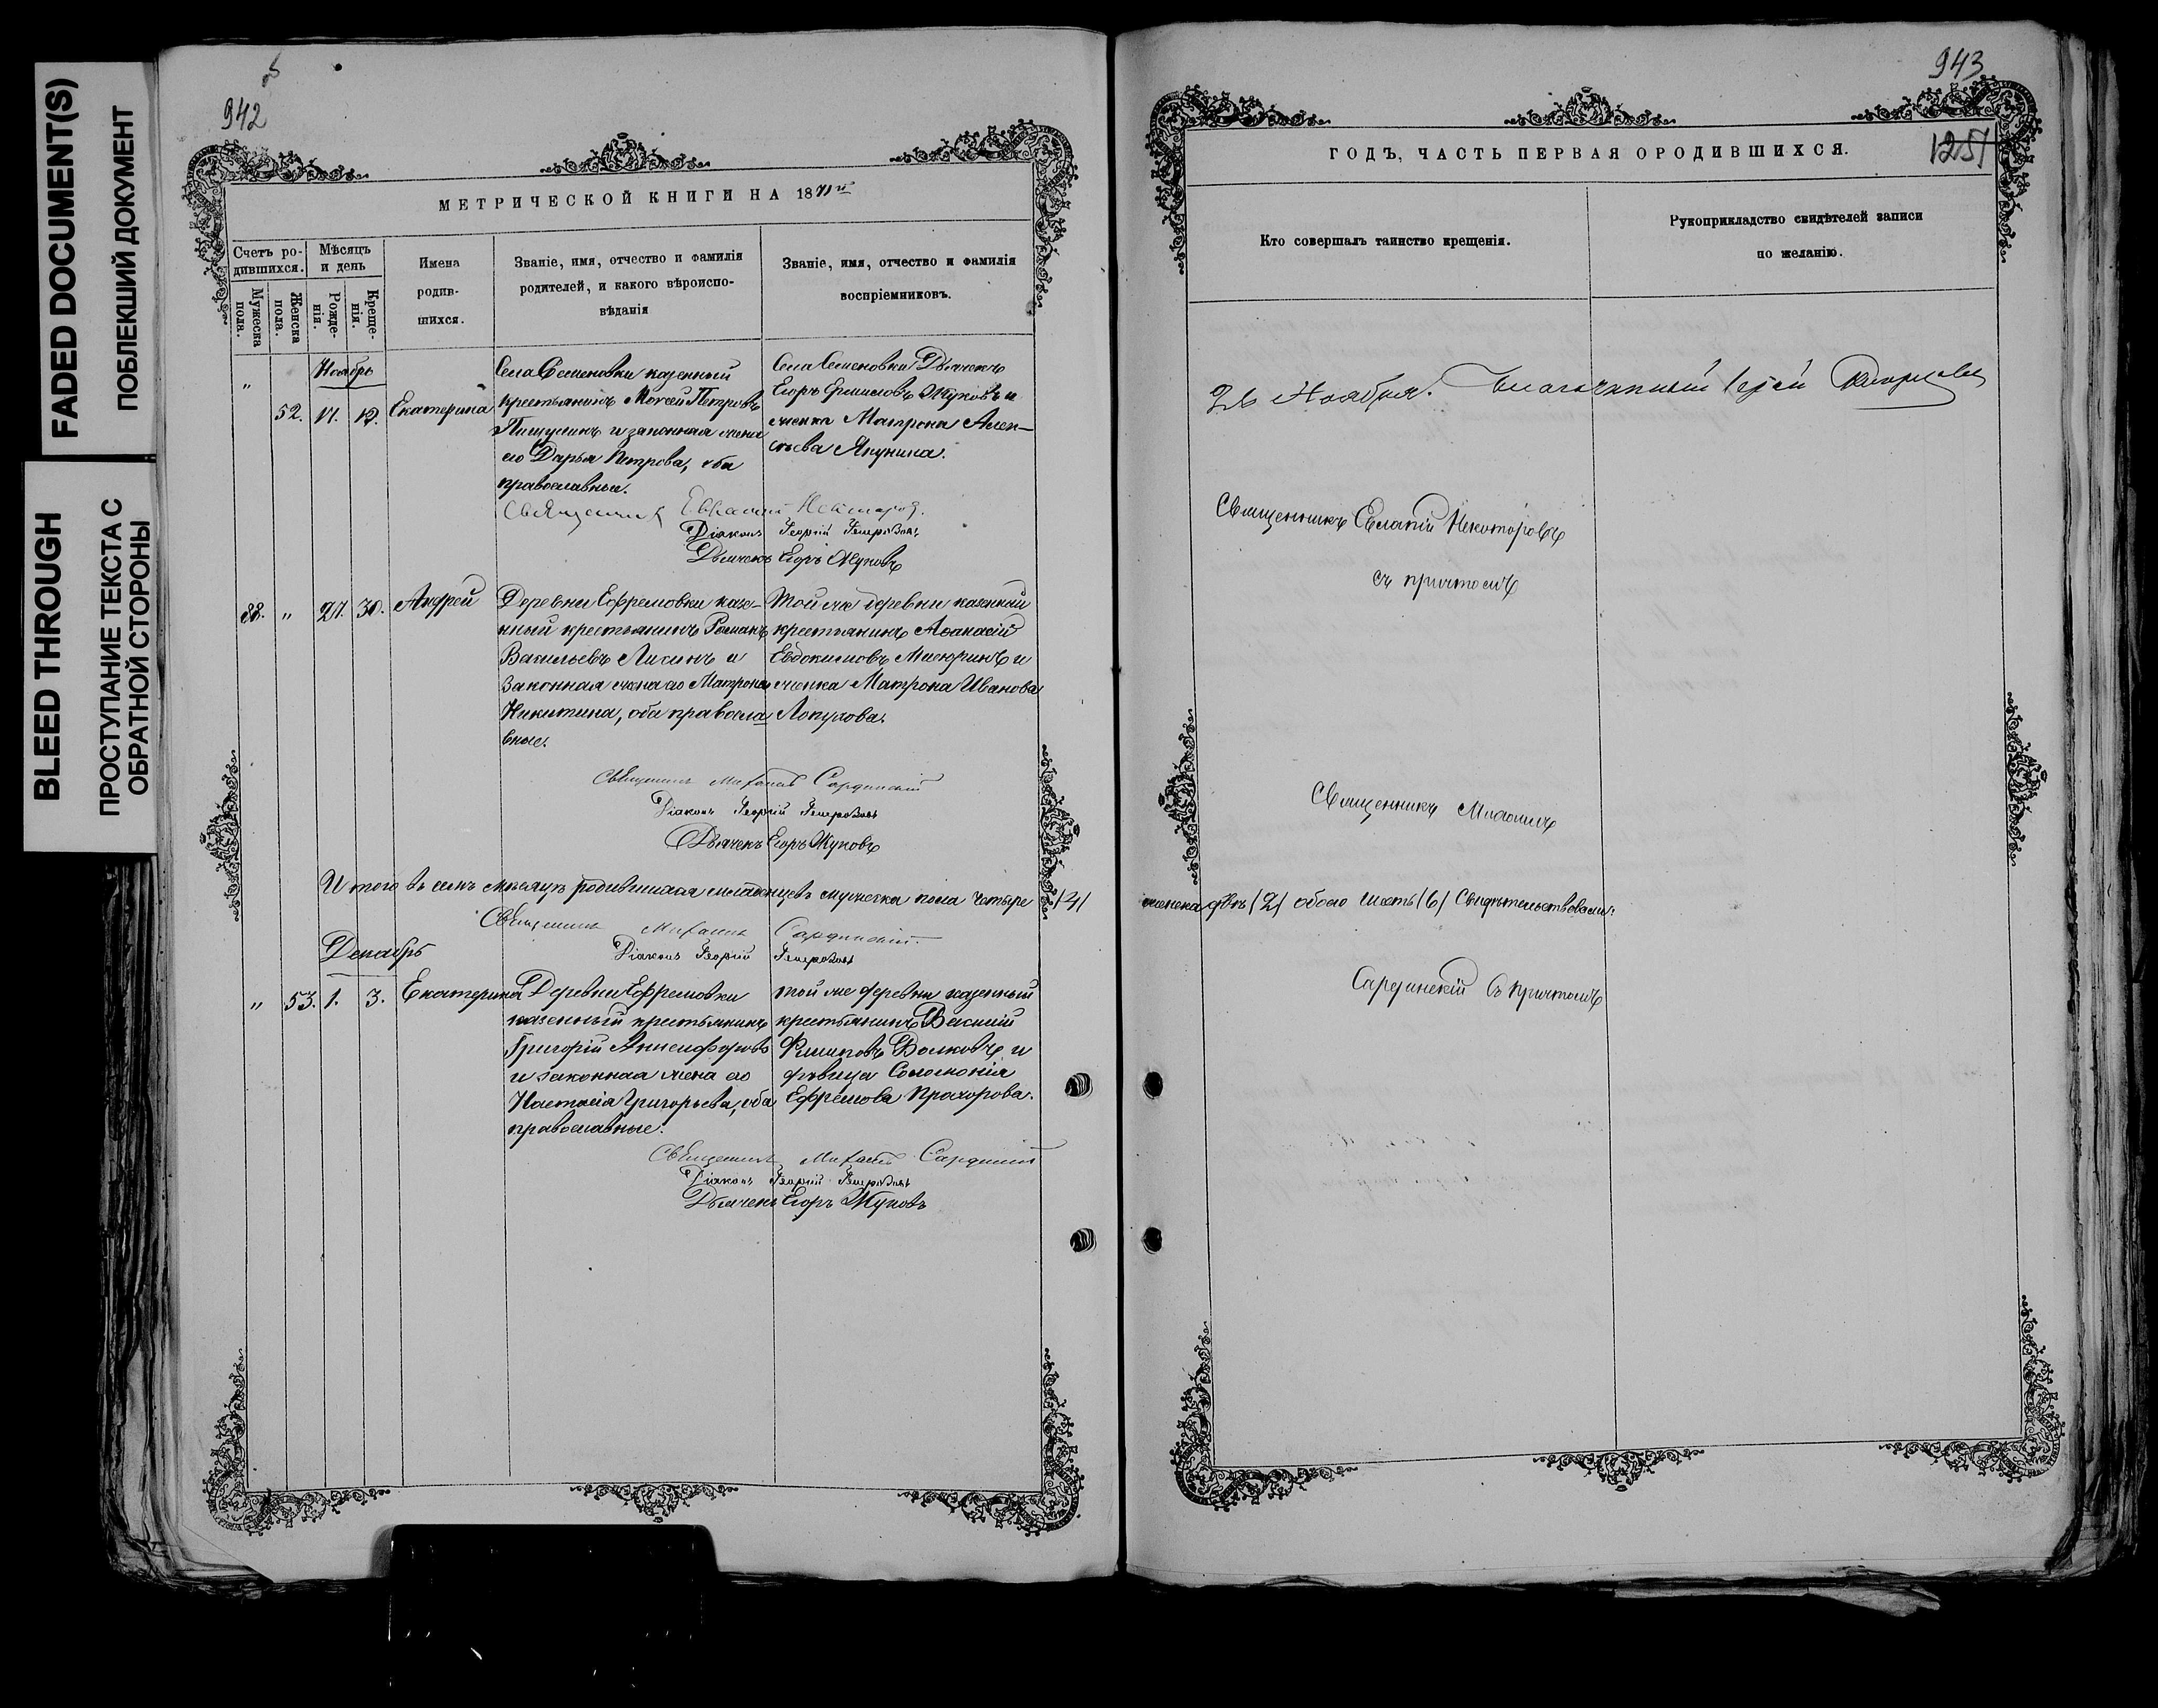 FADED DOCUMENT(S)
ПОБЛЕКШИЙ ДОКУМЕНТ
BLEED THROUGH
ПРОСТУПАНИЕ ТЕКСТА С
ОБРАТНОЙ СТОРОНЫ
942
МЕТРИЧЕСКОЙ КНИГИ НА 1871й
Счетъ ро-
дившихся.
Мѣсяцъ
и день
Мужеска
пола.
Женска
пола.
Рожде-
нія.
Креще-
нія.
Имена
родив-
шихся.
Званіе, имя, отчество и фамилія
родителей, и какого вѣроиспо-
вѣданія
Званіе, имя, отчество и фамилія
воспріемниковъ.
Ноябрь
„ 52. 17. Екатерина
Села Семеновки казенный
крестьянинъ Моисей Петровъ
и законная жена
его Дарья Петрова, оба
православные.
Села Семеновки Дьячекъ
Егоръ Жуковъ и
женка Матрона Алек-
сѣева Якунина.
Священникъ
Діаконъ Георгій
Дьячекъ Егоръ Жуковъ
38. „ 27. 30. Андрей
Деревни Ефремовки казе-
нный крестьянинъ Романъ
Васильевъ Лисинъ и
законная жена его Матрона
Никитина, оба правосла
вные.
Той же деревни казенный
крестьянинъ Аѳанасій
Евдокимовъ Мисюринъ и
женка Матрона Иванова
Лопухова.
Священникъ Михаилъ Сардинскій
Діаконъ Георгій
Дьячекъ Егоръ Жуковъ
Итого въ семъ мѣсяцѣ родившихся младенцевъ мужеска пола четыре /4/
Священникъ Михаилъ Сардинскій.
Діаконъ Георгій
Декабрь
„ 53. 1. 3. Екатерина
Деревни Ефремовки
казенный крестьянинъ
Григорій Анисифоровъ
и законная жена его
Настасія Григорьева, оба
православные.
той же деревни казенный
крестьянинъ Василій
Филиповъ Волковъ и
дѣвица Соломонія
Ефремова Прохорова.
Священникъ Михаилъ Сардинскій
Діаконъ Георгій
Дьячекъ Егоръ Жуковъ
943
1251
ГОДЪ, ЧАСТЬ ПЕРВАЯ О РОДИВШИХСЯ.
Кто совершалъ таинство крещенія.
Рукоприкладство свидѣтелей записи
по желанію.
Ноября. Благочинный Іерей
Священникъ
съ причтомъ
Священникъ Михаилъ
женска двѣ /2/ обоего шесть /6/ Свидѣтельствовали:
Сардинскій съ причтомъ